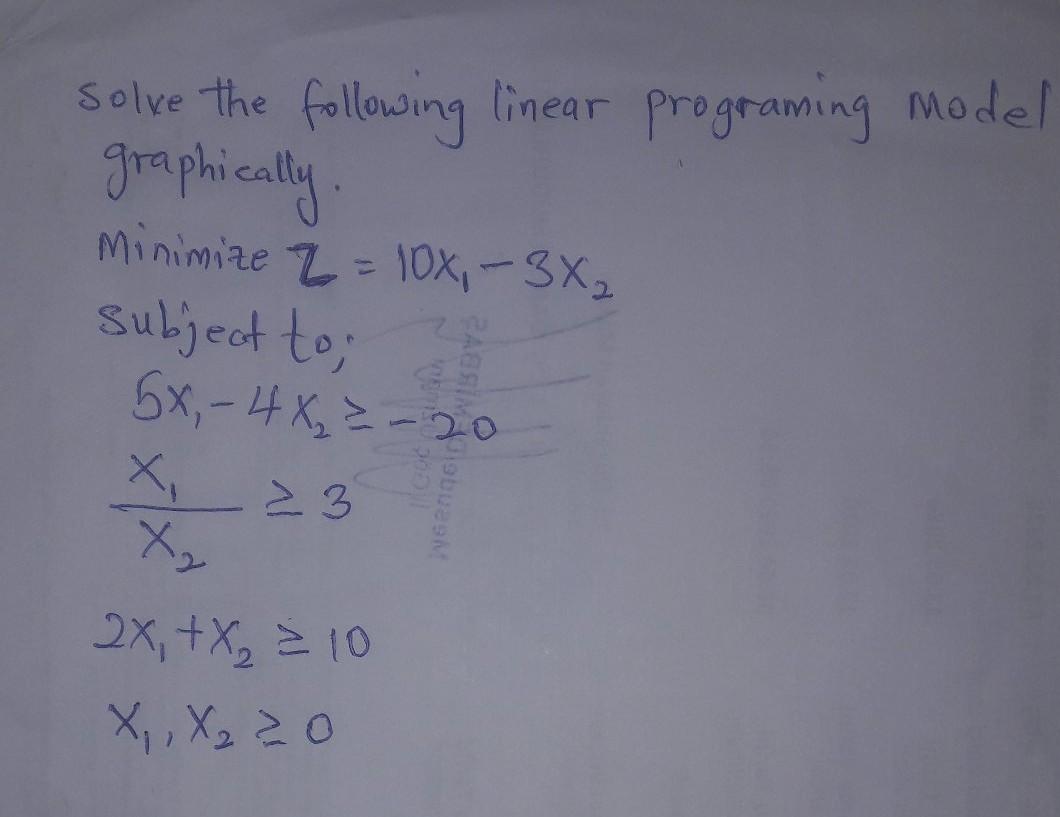 Solve the following linear programing Model
graphically.
Minimize Z = 10X₁ - 3X₂
Subject to;
5X₁ - 4X₂ ≥ -20
X₁
X₂ ≥ 3
2X₁ + X₂ ≥ 10
X₁, X₂ ≥ 0